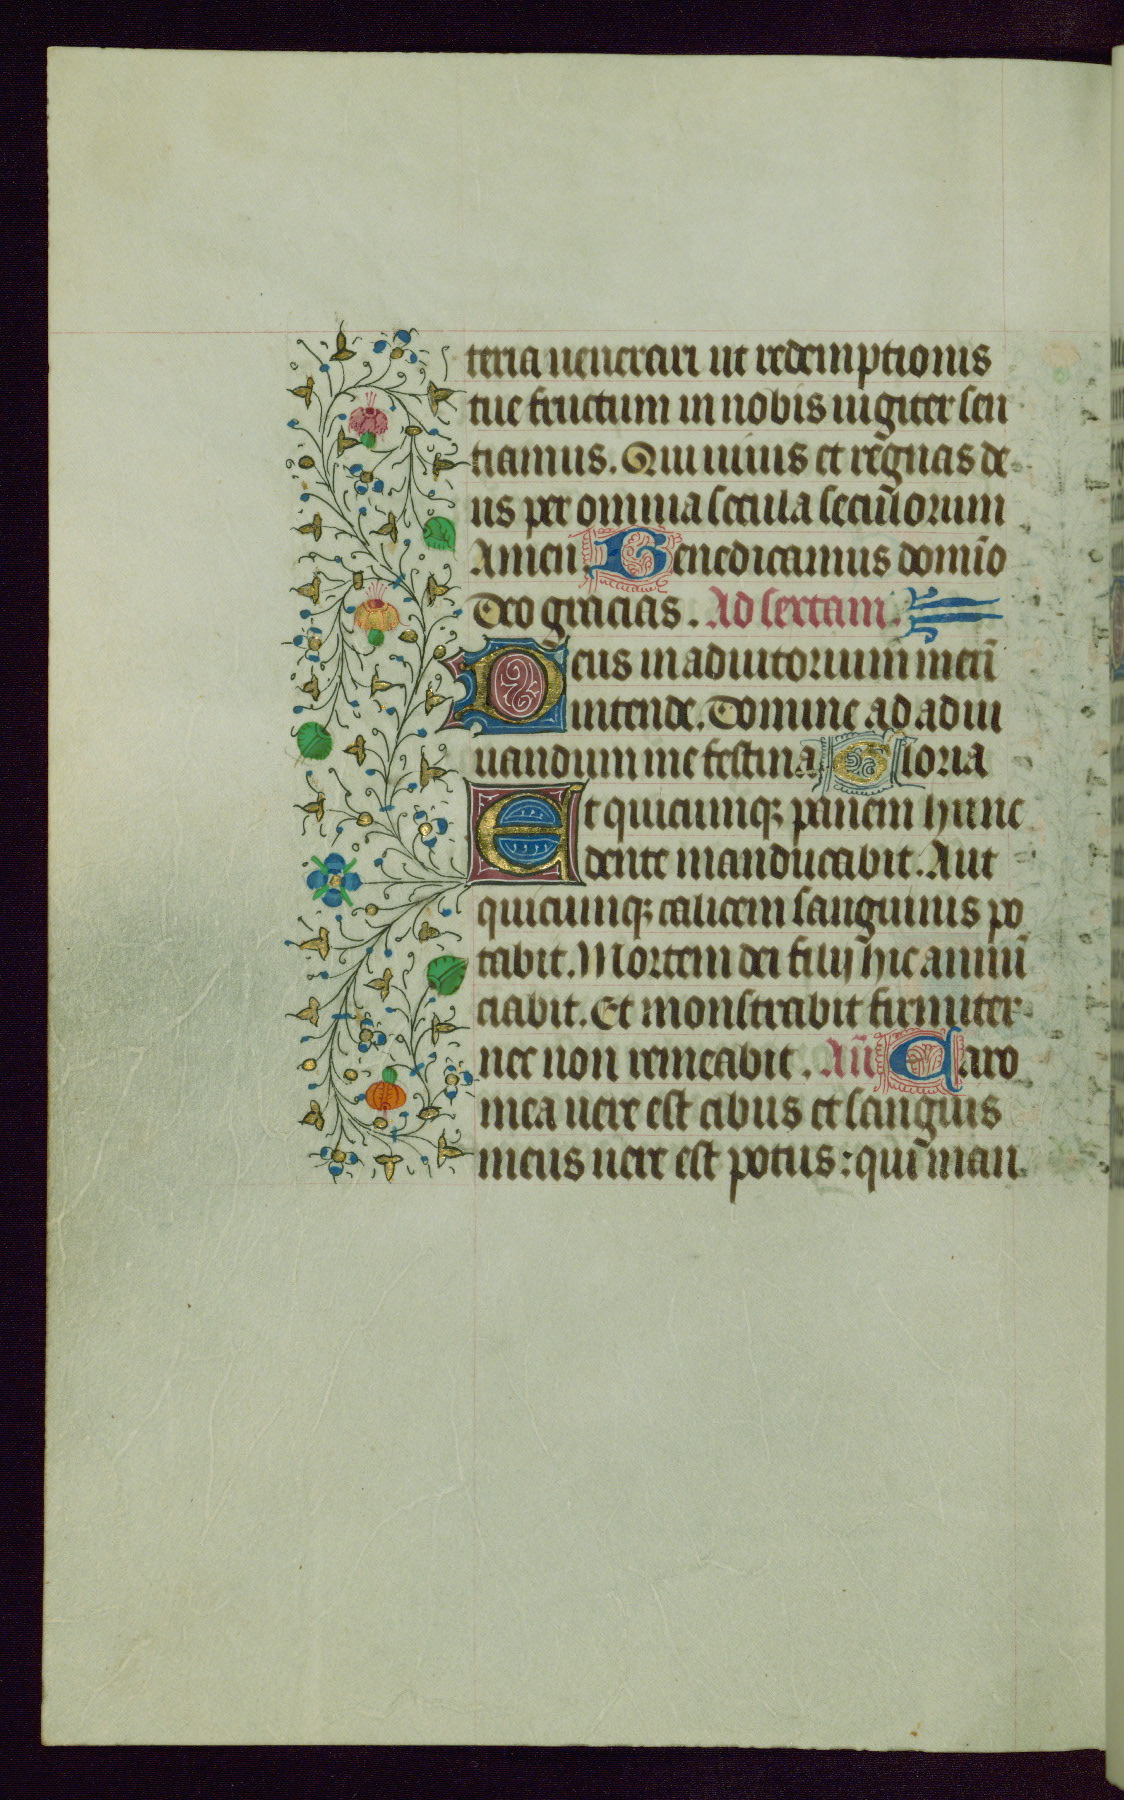 teria uenerari ut redemptionis
tue fructum in nobis iugiter sen
tiamus. Qui uiuis et regnas de
us per omnia secula seculorum
Amen Benedicamus domino
Deo gracias. Ad sextam.
Deus in adiutorium meū
intende. Domine ad adiu
uandum me festina Gloria
Et quicumqꝫ panem hunc
dente manducabit. Aut
quicumqꝫ calicem sanguinis po
tabit. Mortem dei filij hic annū
ciabit. Et monstrabit firmiter
nec non remeabit. Añ Caro
mea uere est cibus et sanguis
meus uere est potus: qui man